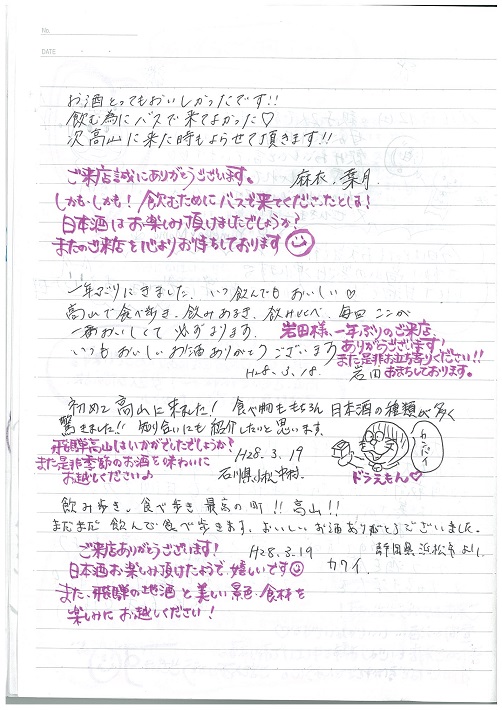 No.
DATE
お酒とってもおいしかったです!!
飲む為にバスで来てよかった♡
次高山に来た時もよらせて頂きます!!
麻衣.葉月
ご来店誠にありがとうございます。
しかも・しかも!飲むためにバスで来てくださったとは!
日本酒はお楽しみ頂けましたでしょうか?
またのご来店を心よりお待ちしております
一年ぶりにきました。いつ飲んでもおいしい♡
高山で食べ歩き、飲みあるき、飲みくらべ、毎回ここが
一番おいしくて必ずよります。
いつもおいしいお酒ありがとうございます
H28.3.18.
岩田様、一年ぶりのご来店
ありがとうございます!
また是非お立ち寄りください!!
お待ちしております。
初めて高山に来ました!食べ物ももちろん日本酒の種類が多く
驚きました!!知り合いにも紹介したいと思います。
H28.3.19
石川県小松中村.
カンパイ
ドラえもん♡
飛騨高山はいかがでしたでしょうか?
また是非季節のお酒を味わいに
お越しください♪
飲み歩き。食べ歩き最高の町!!高山!!
まだまだ飲んで食べ歩きます。おいしいお酒ありがとうございました。
H28.3.19
静岡県浜松市より.
カワイ.
ご来店ありがとうございます!
日本酒お楽しみ頂けたようで、嬉しいです
また、飛騨の地酒と美しい景色・食材を
楽しみにお越しください!